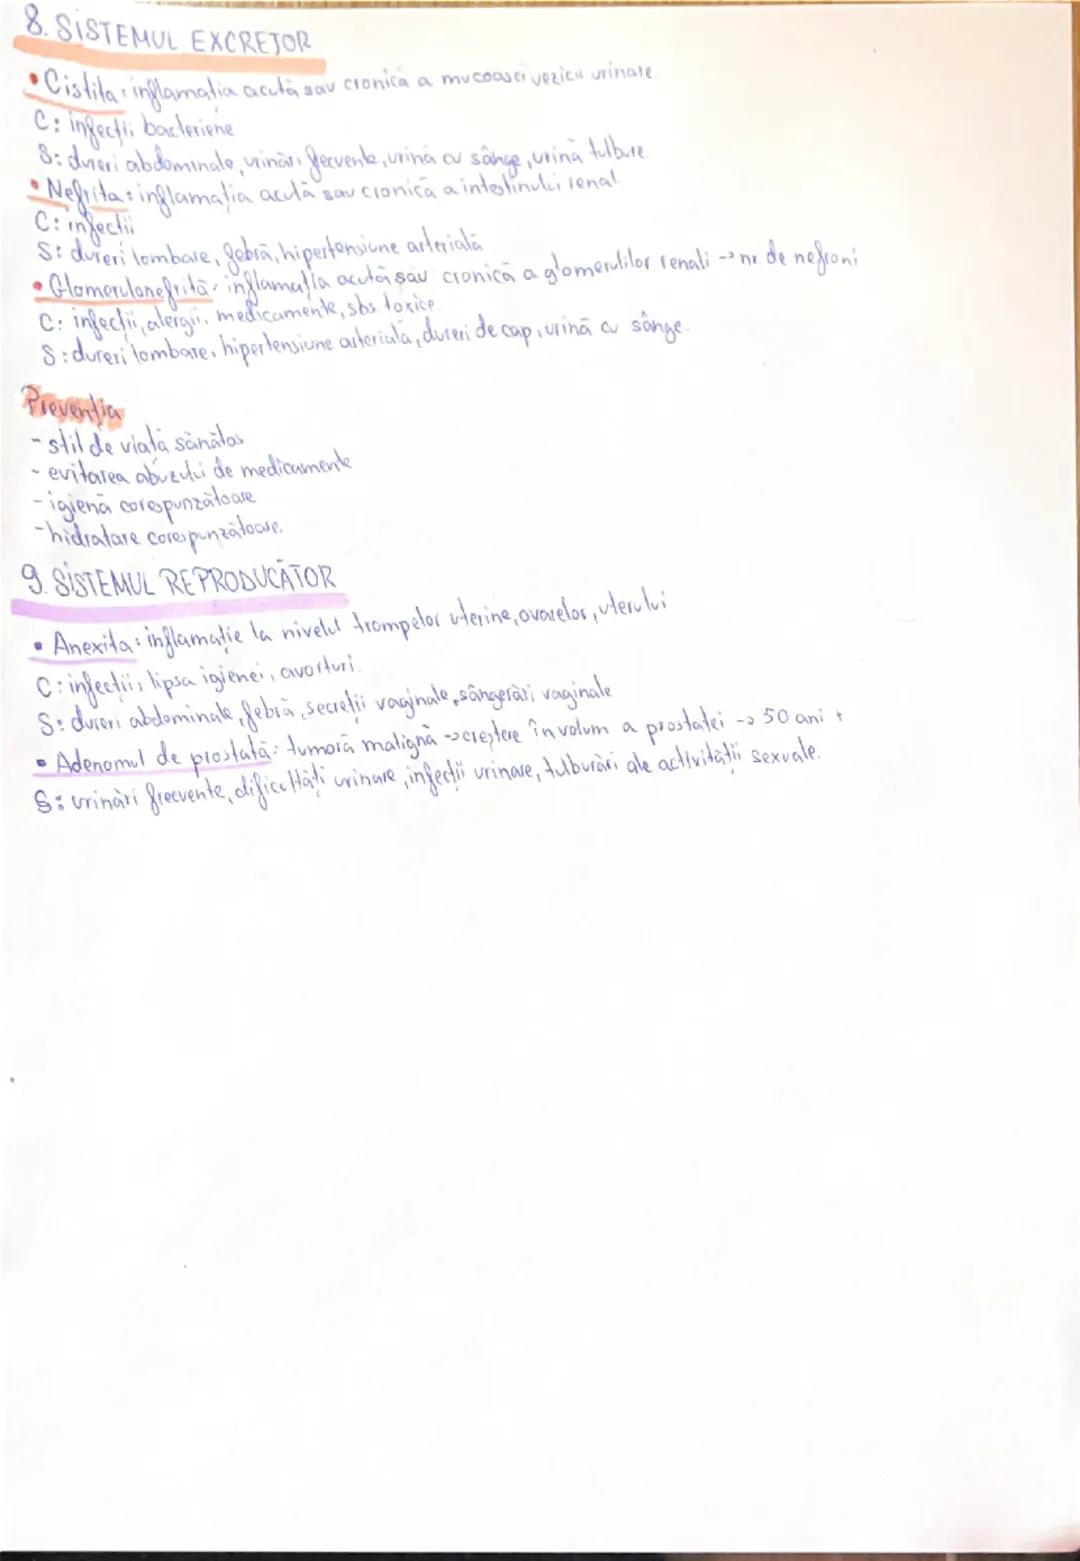 8. SISTEMUL EXCRETOR
• Cistita: inflamația acută sau cronică a mucoasei vezicii urinare.
C: infecții bacteriene
S: dureri abdominale, urinări frecvente, urină cu sânge, urină tulbure.
• Nefrita: inflamația acută sau cronică a intestinului renal
C: infecții
S: dureri lombare, febră, hipertensiune arterială
• Glomerulonefrită: inflamația acută sau cronică a glomerulilor renali -> nr. de nefroni
C: infecții, alergii, medicamente, sbs. toxice.
S: dureri lombare, hipertensiune arterială, dureri de cap, urină cu sânge.
Prevenția
- stil de viață sănătos
- evitarea abuzului de medicamente
- igienă corespunzătoare
- hidratare corespunzătoare.
9. SISTEMUL REPRODUCĂTOR
• Anexita: inflamație la nivelul trompelor uterine, ovarelor, uterului
C: infecții, lipsa igienei, avorturi.
S: dureri abdominale, febră, secreții vaginale, sângerări vaginale
• Adenomul de prostată: tumoră malignă -> creștere în volum a prostatei -> 50 ani +
S: urinări frecvente, dificultăți urinare, infecții urinare, tulburări ale activității sexuale.